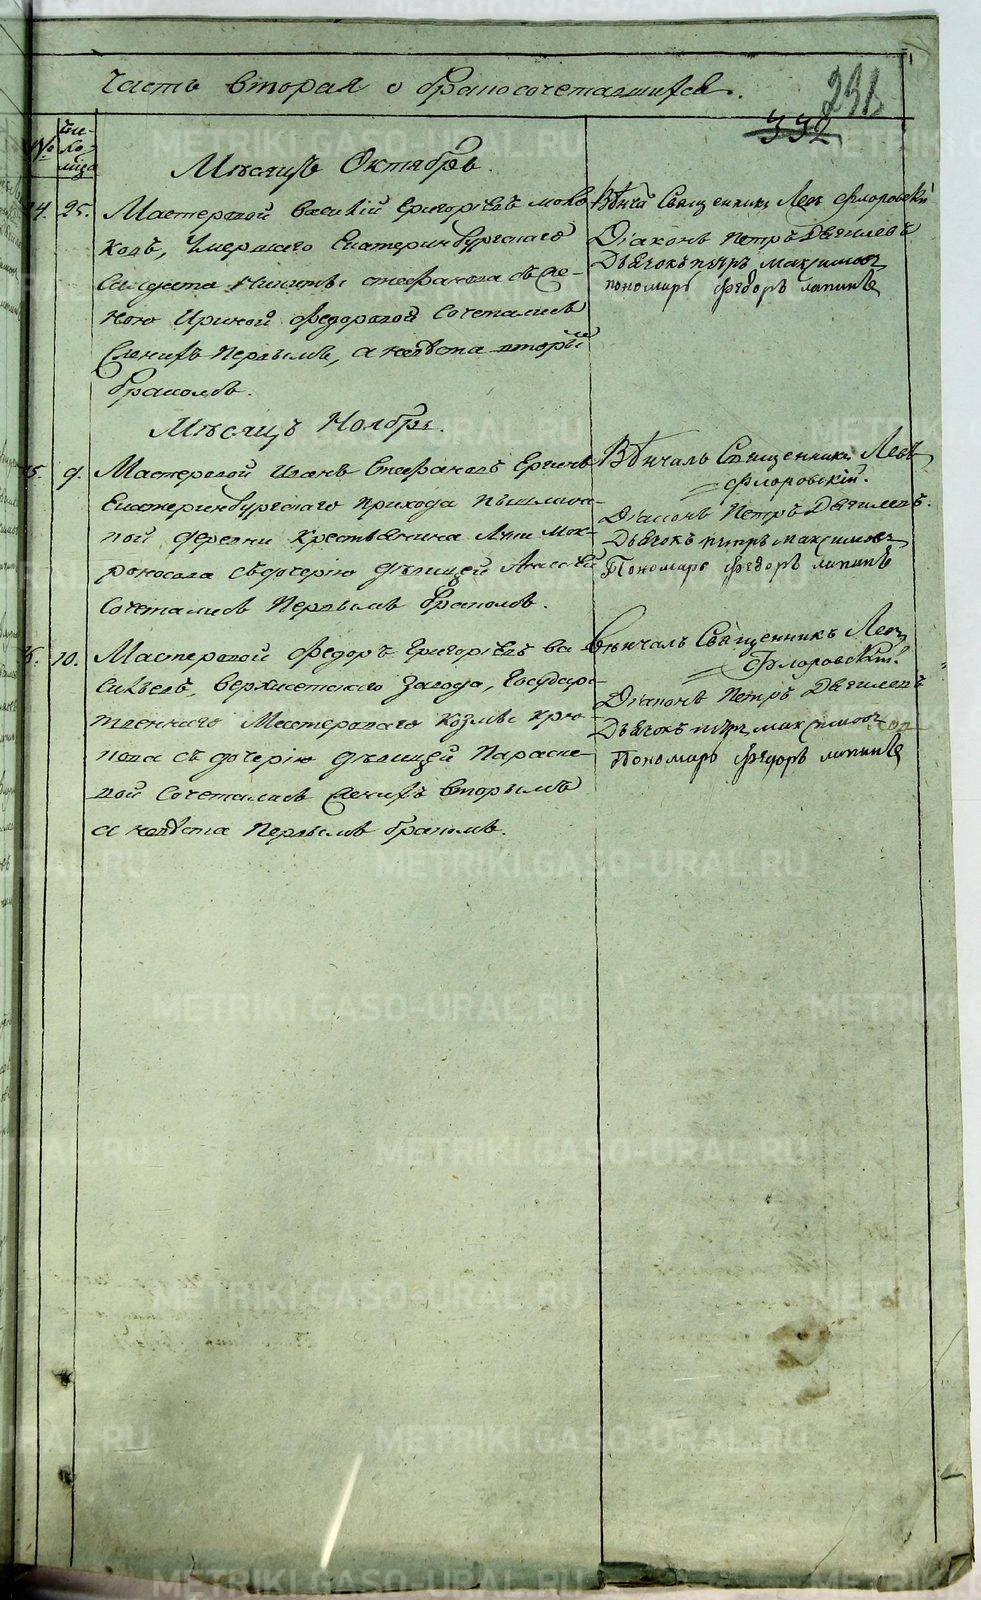 Часть вторая о бракосочетавшихся.
291
332
№
Чи-
Мѣсяцъ Октябрь.
25. Мастеровой Василій Григорьевъ
умершаго Екатеринбургскаго
Солдата Никиты Стефанова съ же-
ною Ириной Федоровой сочетались
женихъ первымъ, а невѣста вторымъ
бракомъ.
Священникъ Левъ Флоровскій
Діаконъ Петръ Дягилевъ
Дьячокъ петръ максимовъ
пономарь федоръ лапинъ
Мѣсяцъ Ноябрь.
9. Мастеровой Иванъ Стефановъ
Екатеринбургскаго прихода пышмин-
ной деревни крестьянина Мок-
роносова съ дочерію дѣвицей
сочетались первымъ бракомъ.
Вѣнчалъ Священникъ Левъ
Флоровскій.
Діаконъ Петръ Дягилевъ.
Дьячокъ петръ максимовъ
Пономарь федоръ лапинъ
10. Мастеровой Федоръ Григорьевъ Ва-
сильевъ, Верхисетскаго завода, Государ-
ственнаго Мастероваго Козмы Крю-
кова съ дочерію дѣвицей Параске-
вой сочетались женихъ вторымъ
а невѣста первымъ бракомъ.
Вѣнчалъ Священникъ Левъ
Флоровскій.
Діаконъ Петръ Дягилевъ
Дьячокъ петръ максимовъ
Пономарь федоръ лапинъ
METRIKI.GASO-URAL.RU